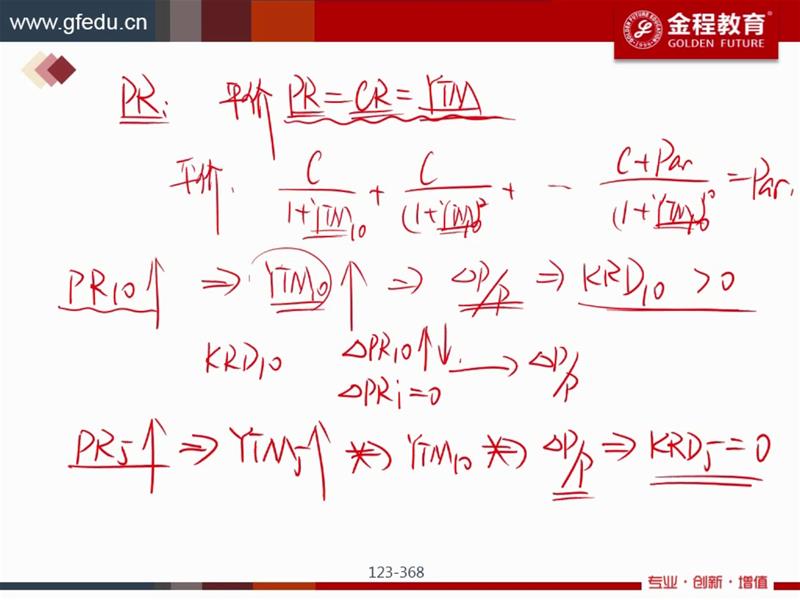 www.gfedu.cn
金程教育
GOLDEN FUTURE
PRi 平价 PR=CR=YTM
平价. C/(1+YTM10) + C/(1+YTM10)² + - (C+Par)/(1+YTM10)¹⁰ =Par.
PR10↑ ⇒ YTM10↑ ⇒ ΔP/P ⇒ KRD10 >0
KRD10 ΔPR10↑↓ → ΔP/P
ΔPRi=0
PR5↑ ⇒ YTM5↑ ⇏ YTM10 ⇏ ΔP/P ⇒ KRD5=0
123-368
专业·创新·增值